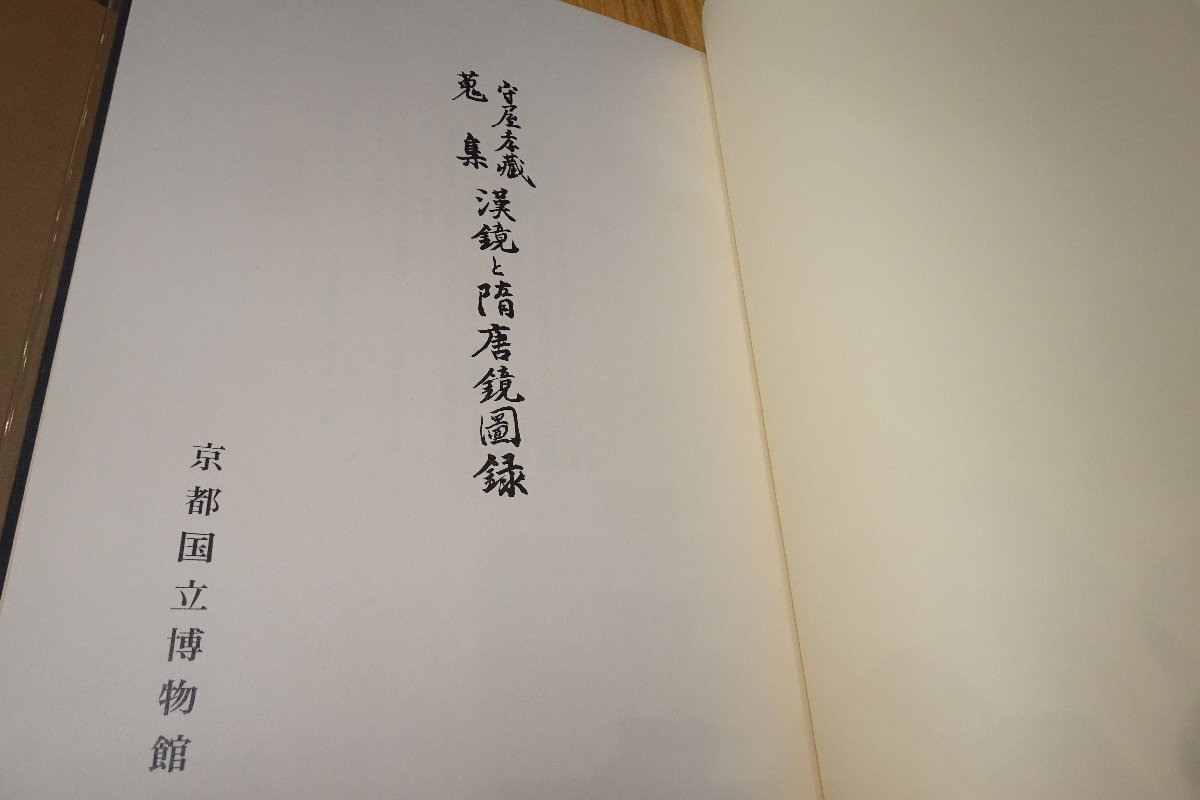 守屋孝藏
蒐集
漢鏡と隋唐鏡圖録
京都国立博物館